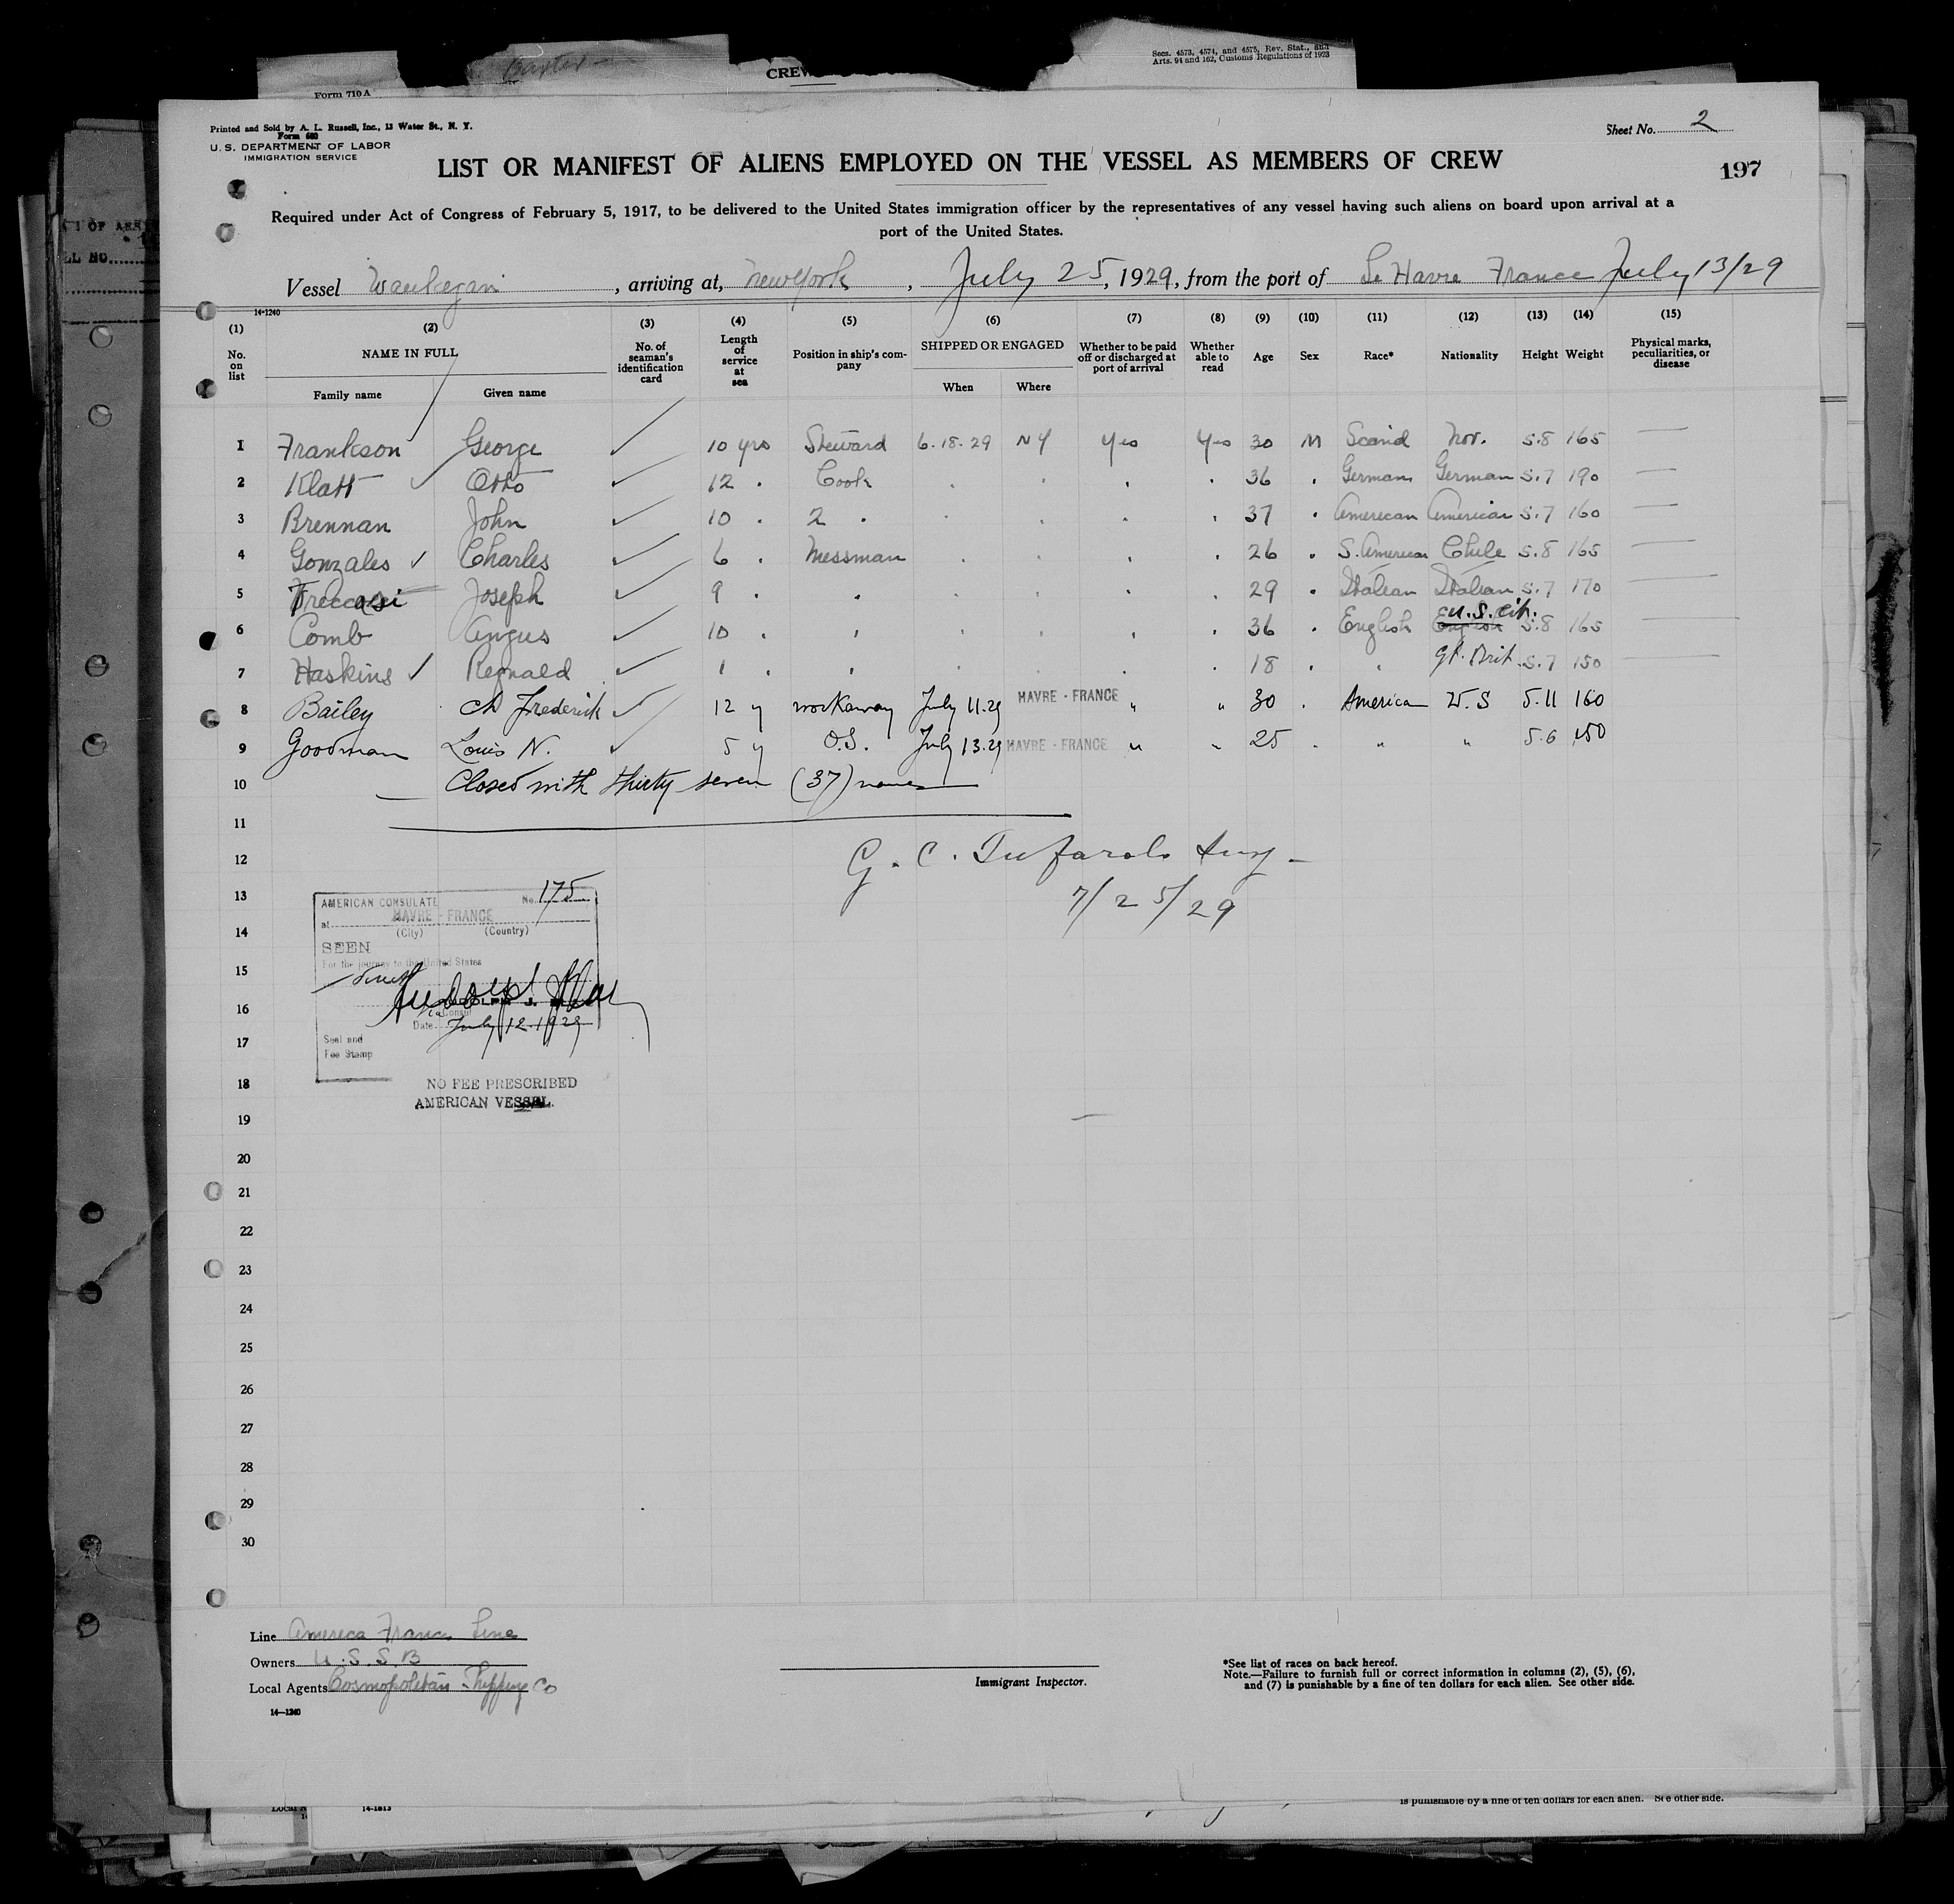 Baxter
CREW
Secs. 4573, 4574, and 4575, Rev. Stat., and
Arts. 94 and 162, Customs Regulations of 1923
Form 710 A
Printed and Sold by A. L. Russell, Inc., 13 Water St., N. Y.
Form 680
U. S. DEPARTMENT OF LABOR
IMMIGRATION SERVICE
Sheet No. 2
LIST OR MANIFEST OF ALIENS EMPLOYED ON THE VESSEL AS MEMBERS OF CREW
197
Required under Act of Congress of February 5, 1917, to be delivered to the United States immigration officer by the representatives of any vessel having such aliens on board upon arrival at a
port of the United States.
Vessel Waukegan, arriving at, New York, July 25, 1929, from the port of Le Havre France July 13/29
14-1240
(1) (2) (3) (4) (5) (6) (7) (8) (9) (10) (11) (12) (13) (14) (15)
No. on list
NAME IN FULL
Family name
Given name
No. of seaman's identification card
Length of service at sea
Position in ship's company
SHIPPED OR ENGAGED
When
Where
Whether to be paid off or discharged at port of arrival
Whether able to read
Age
Sex
Race*
Nationality
Height
Weight
Physical marks, peculiarities, or disease
1 Frankson George ✓ 10 yrs Steward 6.18.29 NY Yes Yes 30 M Scand Nor. 5.8 165 —
2 Klatt ✓ Otto ✓ 12 . Cook . . . . 36 . German German 5.7 190 —
3 Brennan John ✓ 10 . 2 . . . . . 37 . American American 5.7 160 —
4 Gonzales ✓ Charles ✓ 6 . Messman . . . . 26 . S. American Chile 5.8 165 —
5 Joseph ✓ 9 . . . . . . 29 . Italian Italian 5.7 170 —
6 Comb Angus ✓ 10 . . . . . . 36 . English English U.S. Cit. 5.8 165 —
7 Haskins ✓ Reginald ✓ 1 . . . . . . 18 . . Gt. Brit. 5.7 150 —
8 Bailey Ch Frederick ✓ 12 y workaway July 11.29 HAVRE - FRANCE " " 30 . American U.S 5.11 160
9 Goodman Louis N. ✓ 5 y O.S. July 13.29 HAVRE - FRANCE " " 25 . " " 5.6 150
10 Closed with thirty seven (37) names
11
12 G. C.
13 7/25/29
14
15
16
17
18
19
20
21
22
23
24
25
26
27
28
29
30
AMERICAN CONSULATE No. 175
at HAVRE - FRANCE
(City) (Country)
SEEN
For the journey to the United States
Consul
Date July 12 1929
Seal and
Fee Stamp
NO FEE PRESCRIBED
AMERICAN VESSEL.
Line America France Line
Owners U.S.S.B
Local Agents Cosmopolitan Shipping Co
14—1240
Immigrant Inspector.
*See list of races on back hereof.
Note.—Failure to furnish full or correct information in columns (2), (5), (6),
and (7) is punishable by a fine of ten dollars for each alien. See other side.
14-1813
is punishable by a fine of ten dollars for each alien. See other side.